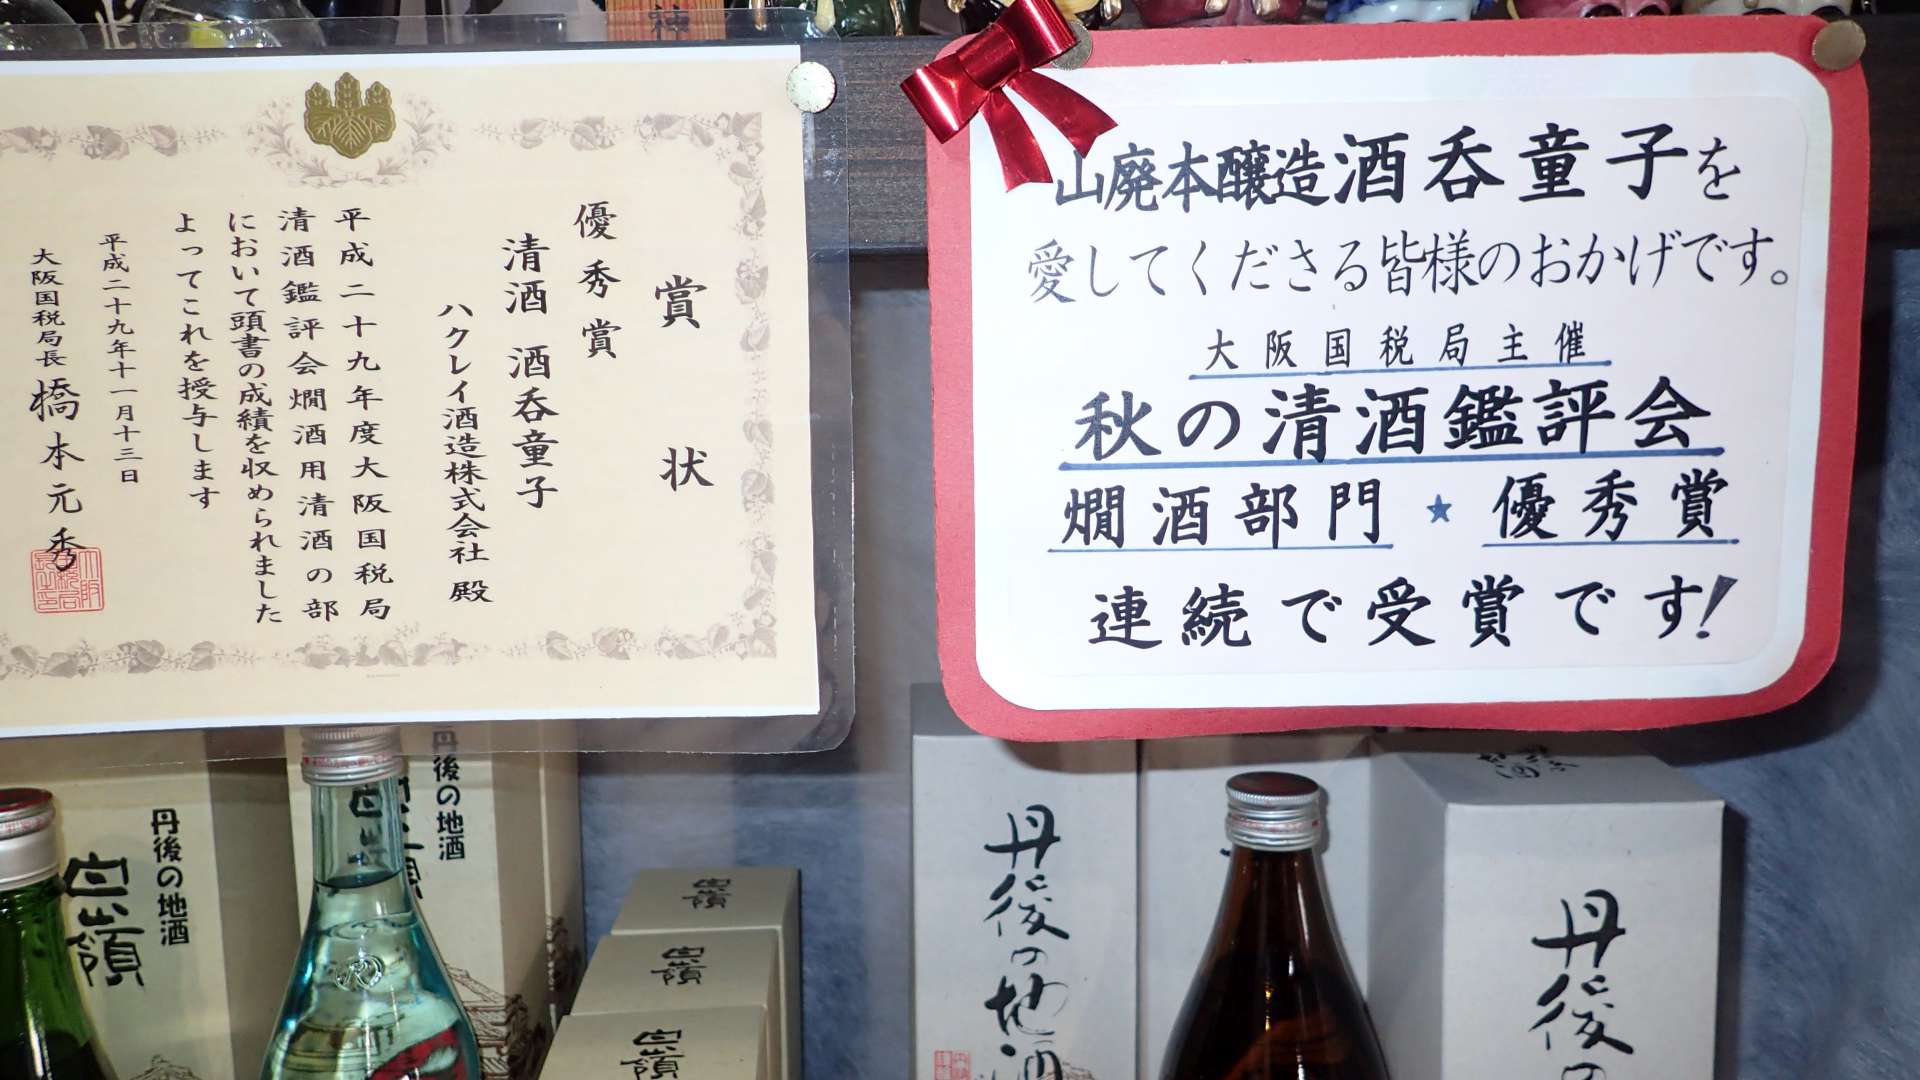 賞状
優秀賞
清酒 酒呑童子
ハクレイ酒造株式会社 殿
平成二十九年度大阪国税局
清酒鑑評会燗酒用清酒の部
において頭書の成績を収められました
よってこれを授与します
平成二十九年十一月十三日
大阪国税局長 橋本元秀
山廃本醸造酒呑童子を
愛してくださる皆様のおかげです。
大阪国税局主催
秋の清酒鑑評会
燗酒部門★優秀賞
連続で受賞です!
丹後の地酒
白嶺
丹後の地酒
白嶺
白嶺
白嶺
白嶺
丹後の地酒
丹後の